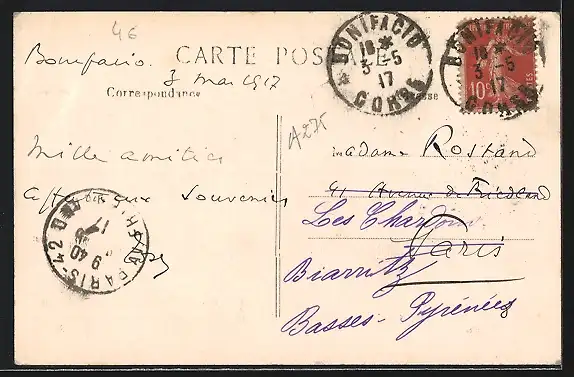 46
CARTE POSTALE
Bonifacio.
3 mai 1917
Correspondance
BONIFACIO
18 *
3 -5
17
CORSE
BONIFACIO
18 *
3 -5
17
CORSE
10c
POSTES
A275
Madame Rostand
Mille amitiés
41 Avenue de Friedland
affectueux souvenirs
Les Charmes
Paris
Biarritz
Basses-Pyrénées
PARIS-42
9 40
17